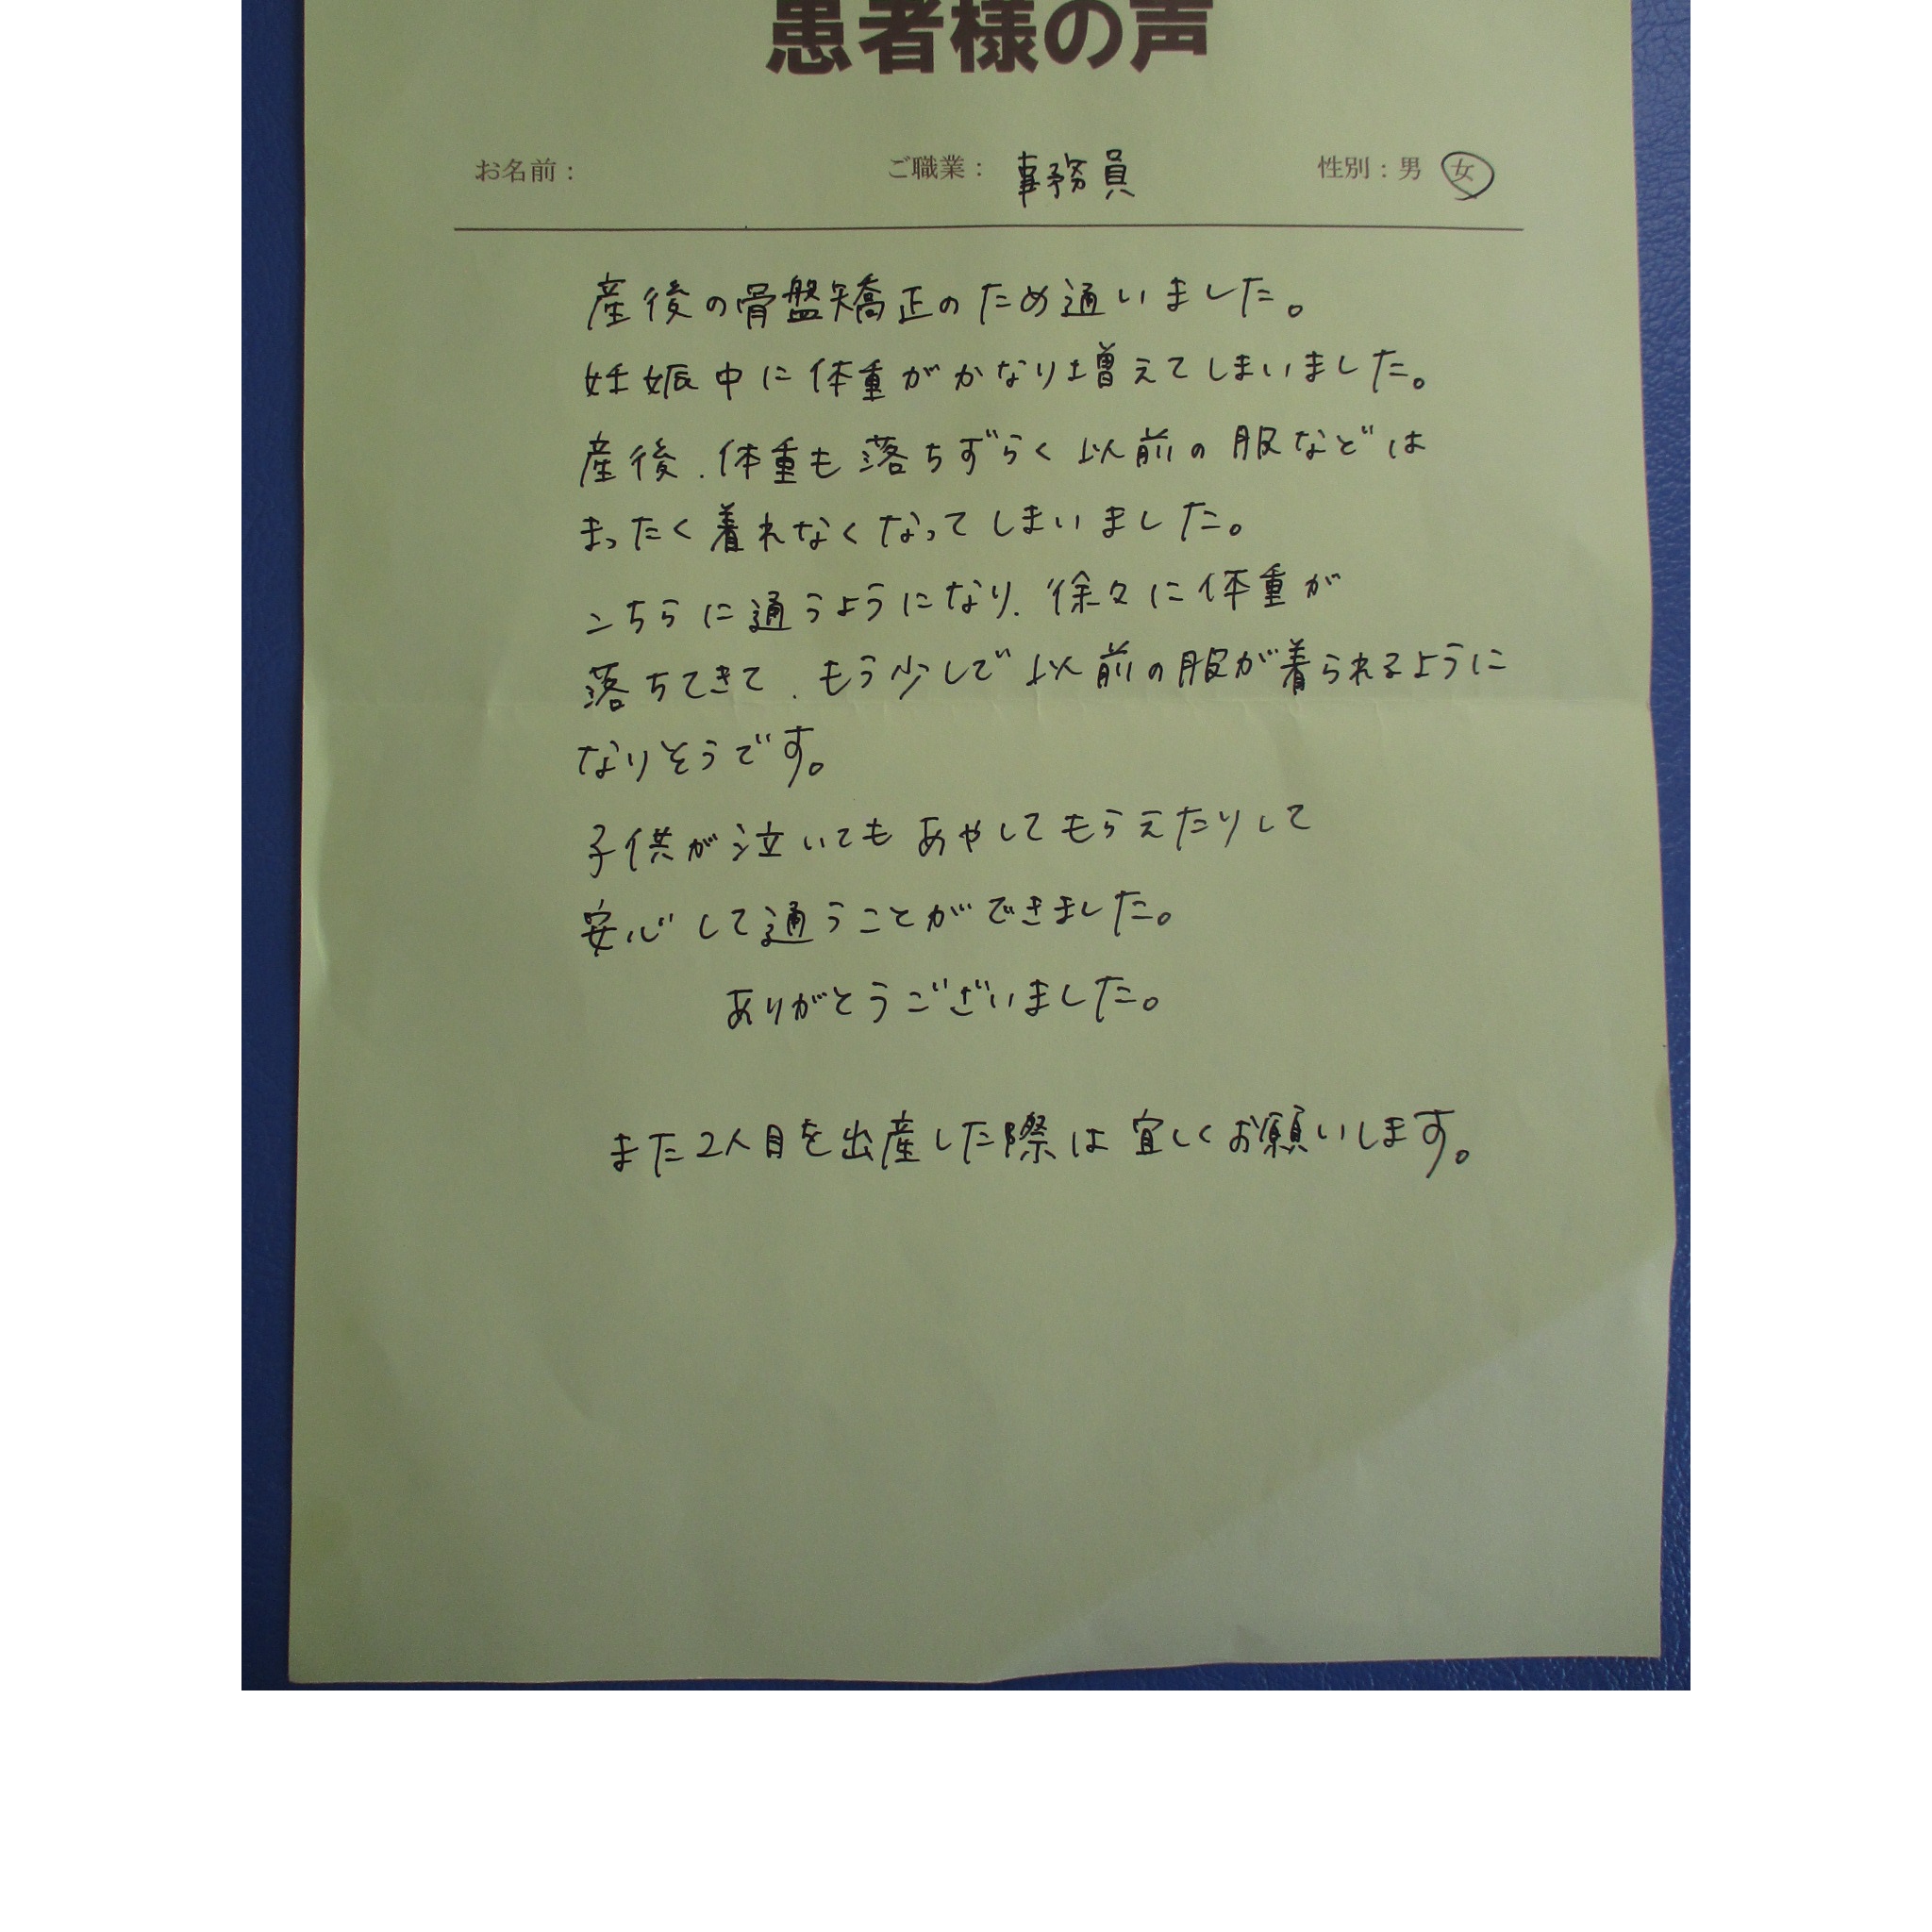 患者様の声
お名前： ご職業： 事務員 性別：男 女
産後の骨盤矯正のため通いました。
妊娠中に体重がかなり増えてしまいました。
産後、体重も落ちずらく以前の服などは
まったく着れなくなってしまいました。
こちらに通うようになり、徐々に体重が
落ちてきて、もう少しで以前の服が着られるように
なりそうです。
子供が泣いてもあやしてもらえたりして
安心して通うことができました。
ありがとうございました。
また2人目を出産した際は宜しくお願いします。